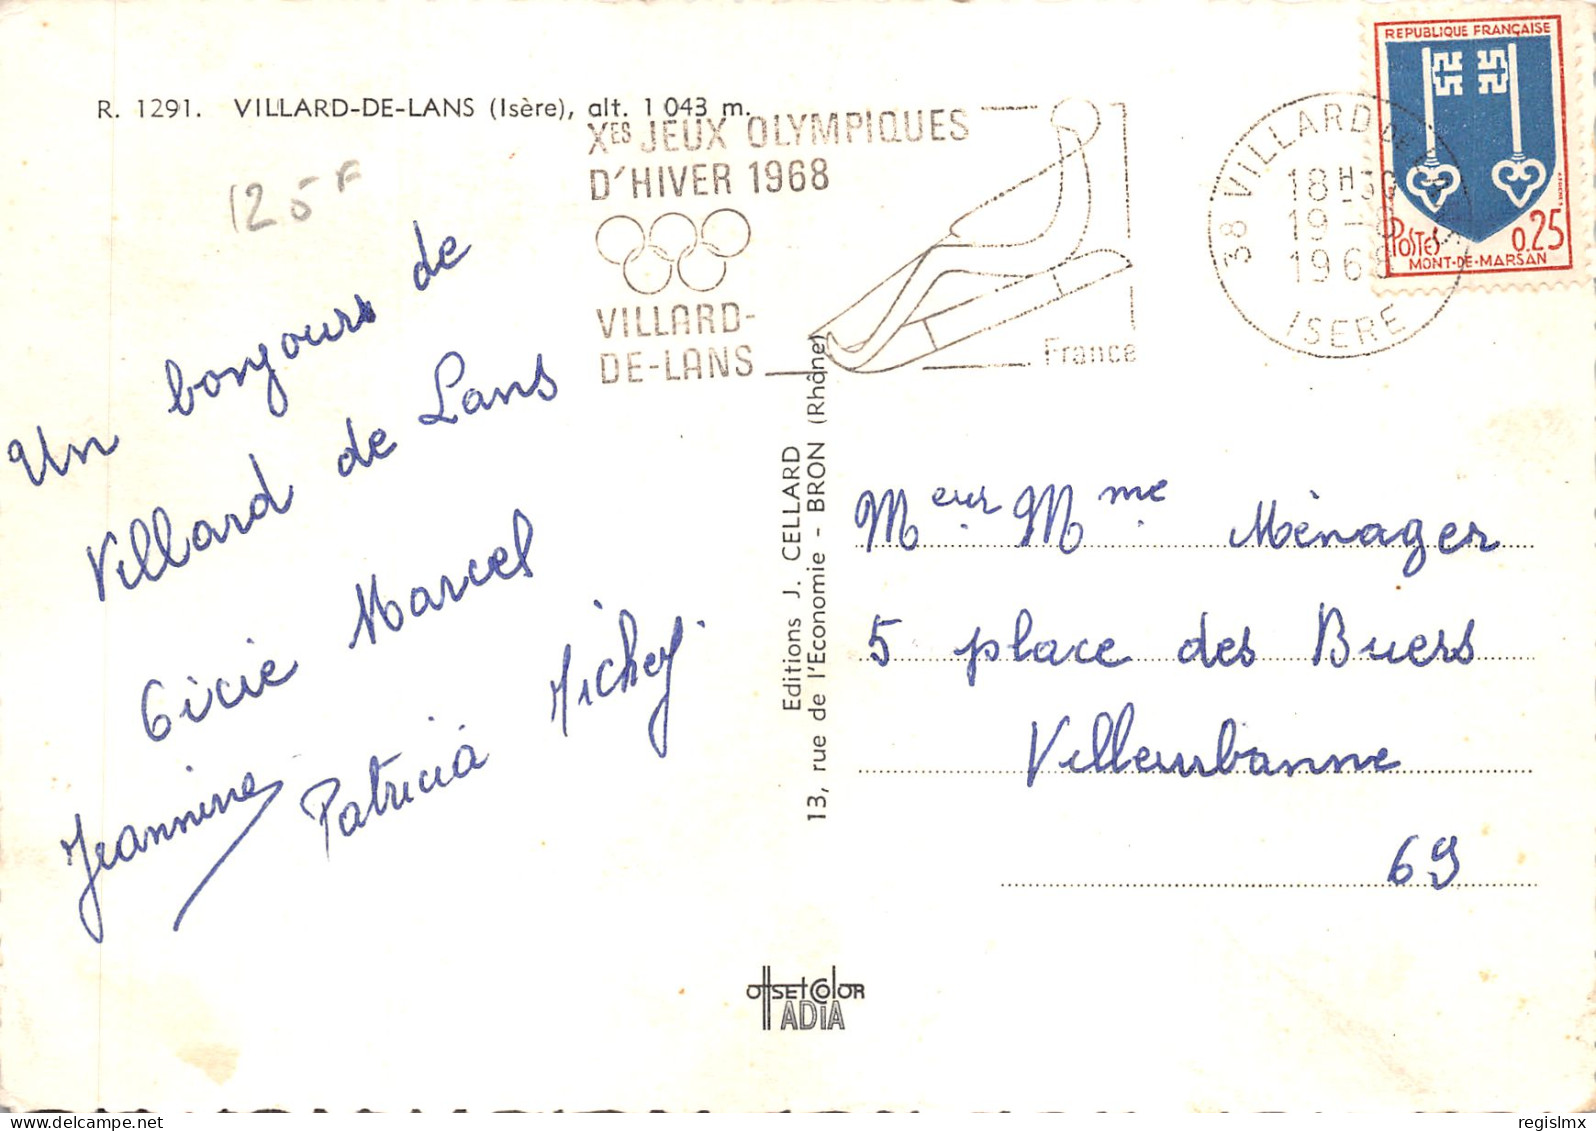 R. 1291. VILLARD-DE-LANS (Isère), alt. 1 043 m.
125 F
Xes JEUX OLYMPIQUES
D'HIVER 1968
VILLARD-
DE-LANS
France
38 VILLARD DE LANS
18 H 30
19 - 8
1968
ISERE
REPUBLIQUE FRANÇAISE
POSTES 0,25
MONT-DE-MARSAN
Un bonjours de
Villard de Lans
Cicie Marcel
Jeannine Patricia Michey.
Editions J. CELLARD
13, rue de l'Economie - BRON (Rhône)
Meur Mme Ménager
5 place des Buers
Villeurbanne
69
OffSEt COlOR
ADIA
regislmx